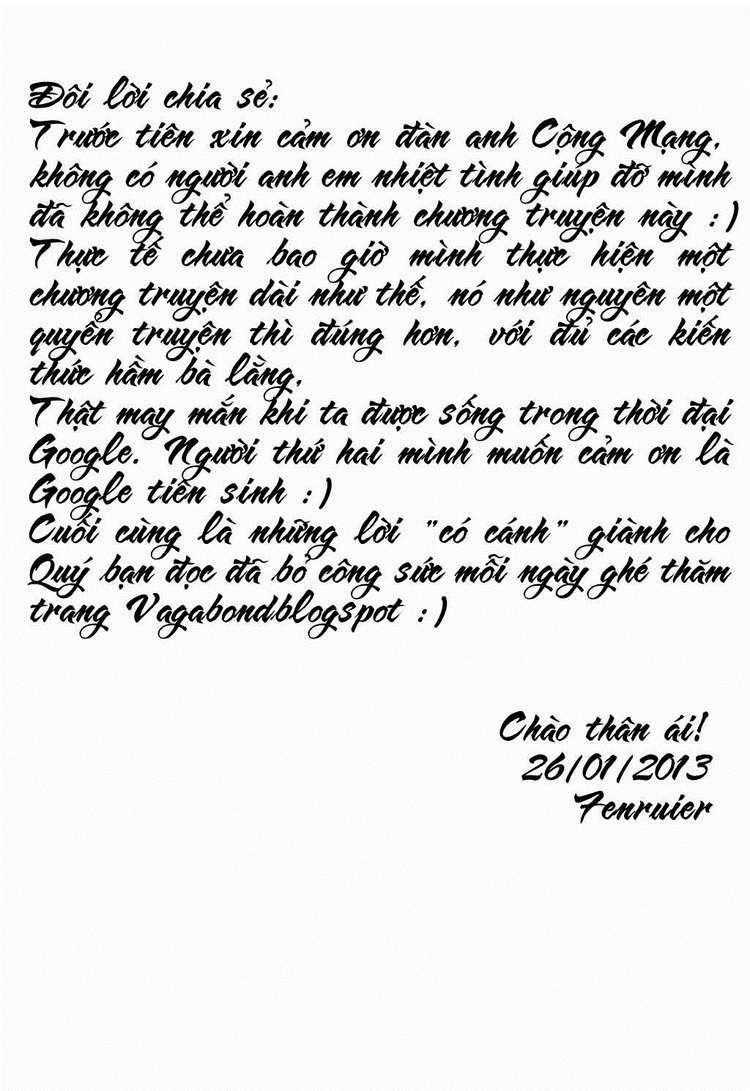 Đôi lời chia sẻ:
Trước tiên xin cảm ơn đàn anh Cộng Mạng,
không có người anh em nhiệt tình giúp đỡ mình
đã không thể hoàn thành chương truyện này :)
Thực tế chưa bao giờ mình thực hiện một
chương truyện dài như thế, nó như nguyên một
quyển truyện thì đúng hơn, với đủ các kiến
thức hầm bà lằng,
Thật may mắn khi ta được sống trong thời đại
Google. Người thứ hai mình muốn cảm ơn là
Google tiên sinh :)
Cuối cùng là những lời "có cánh" giành cho
Quý bạn đọc đã bỏ công sức mỗi ngày ghé thăm
trang Vagabondblogspot :)
Chào thân ái!
26/01/2013
Fenruier